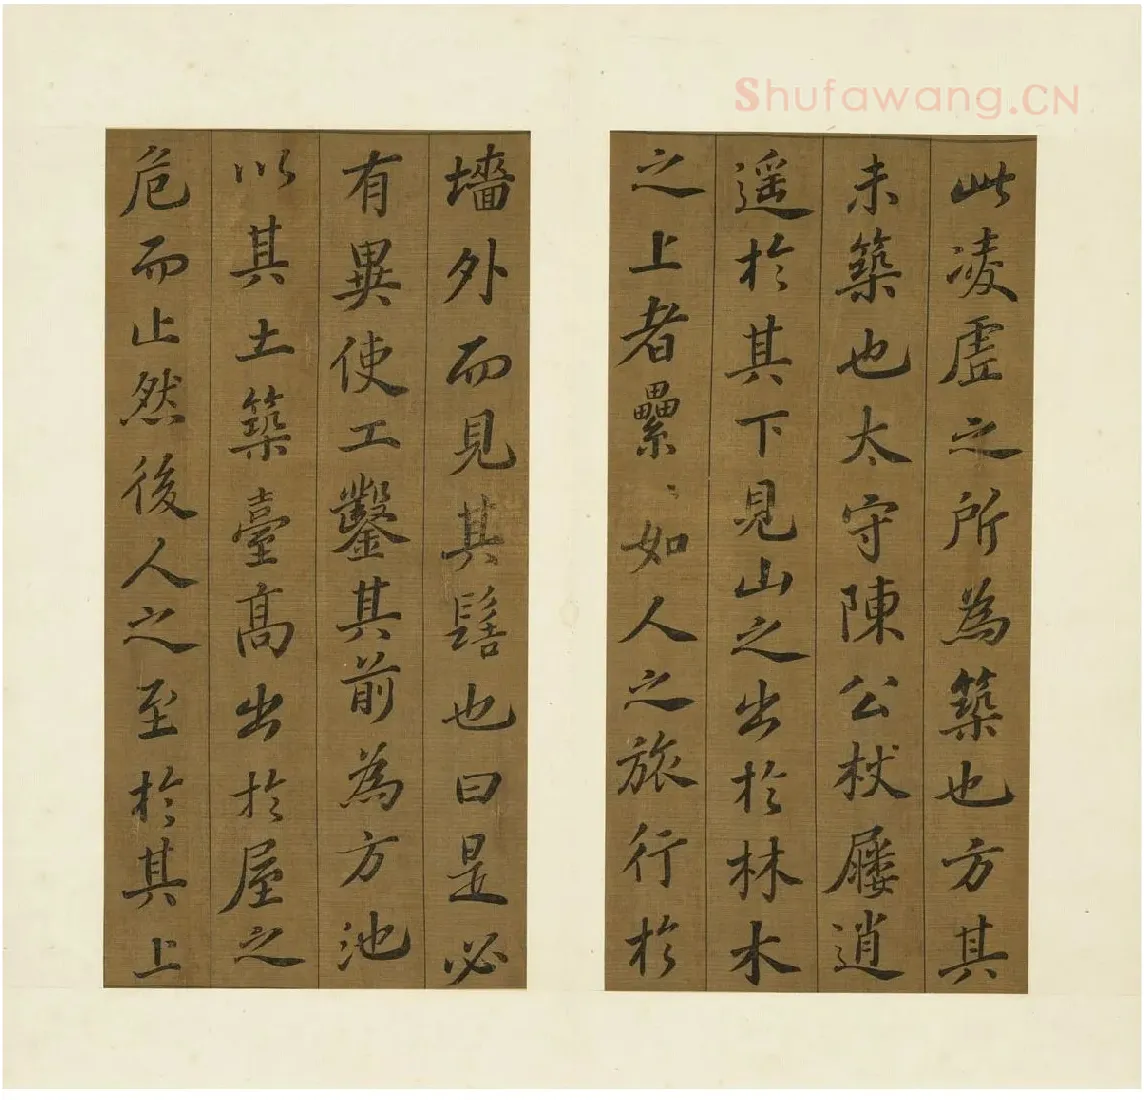 Shufawang.CN
此凌虛之所為築也方其
未築也太守陳公杖屨逍
遥於其下見山之出於林木
之上者纍〻如人之旅行於
墻外而見其髻也曰是必
有異使工鑿其前為方池
以其土築臺高出於屋之
危而止然後人之至於其上